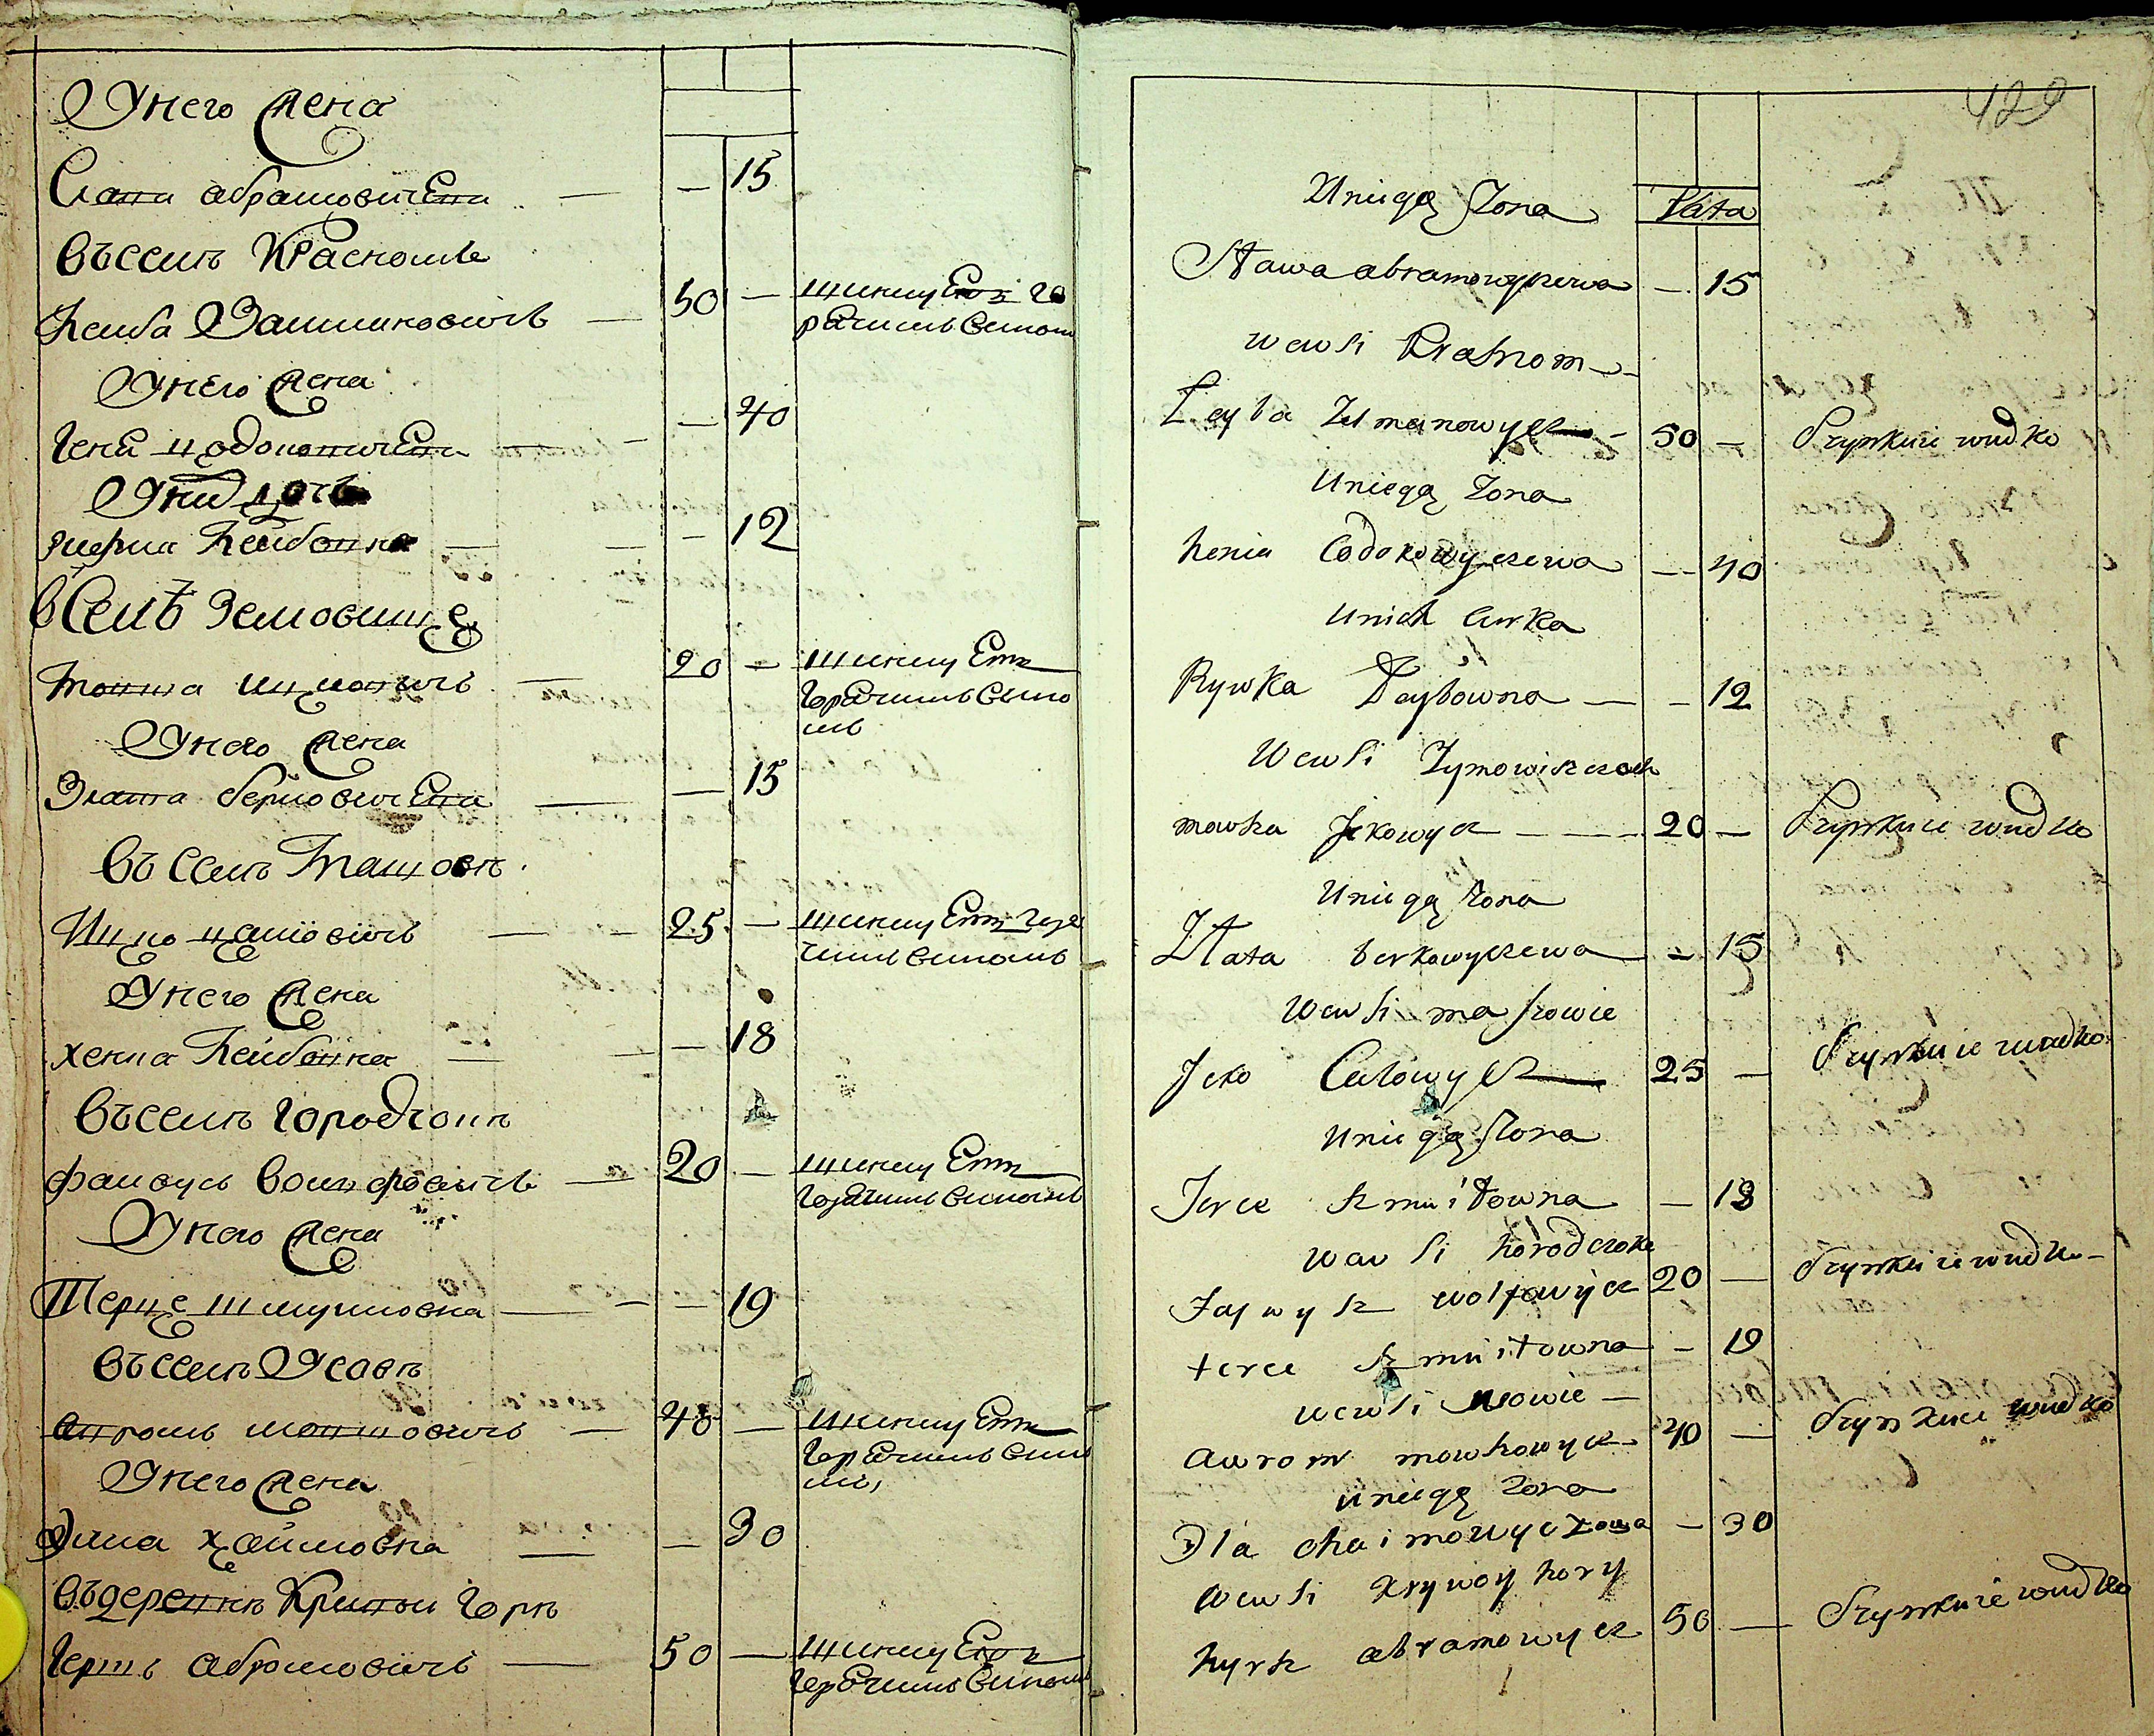 У него жена
Слава абрамовичева — — 15
Въ селе Красноиле
Лейба Залмановичъ — 50 — шинкует го
рачимъ вином
У него жена
Геня цодоковичева — — 40
У них дочь
ривка Лейбовна — — 12
в Селѣ Земовищце
Мовша ицковичъ — 20 — шинкует
горачимъ вино
мъ
У него жена
Злата берковичева — — 15
Въ селе Машове
Ицко цаловичъ — 25 — шинкует горе
чимъ виномъ
У него жена
хенка Лейбовна — — 18
Въ селе городчоке
файвусь волфовичъ — 20 — шинкует
горачимъ виномъ
У него жена
Терце шмуиловна — — 19
Въ селе Усове
авромъ мовшовичъ — 40 — шинкует
горачимъ вино
мъ
У него жена
Элия хаимовна — — 30
Въ деревне Кривой горе
Гершъ абрамовичъ — 50 — шинкует
горачимъ виномъ
429
Uniego Zona
Lata
Sława abramowyczewa — 15
wewsi Krasnom
Leyba Zelmanowycz — 50 — Szynkuie wudko
Uniego Zona
henia Codokowyczewa — 40
Unich Curka
Rywka Leybowna — — 12
Wewsi Zymowiszczach
mowsza Jckowycz — 20 — Szynkuie wudko
Uniego zona
Złata berkowyczewa — 15
Wewsi maszowie
Jcko Calowycz — 25 — Szynkuie wudko
Uniego zona
Terce szmuiłowna — 18
wewsi horodczoke
Fajwysz wolfowycz 20 — Szynkuie wudko
terce szmuiłowna — 19
wewsi usowie
awrom mowszowycz 40 — Szynkuie wudko
uniego Zona
Ela chaimowyczowa — 30
wewsi krywoy hory
hyrsz abramowycz 50 — Szynkuie wudko